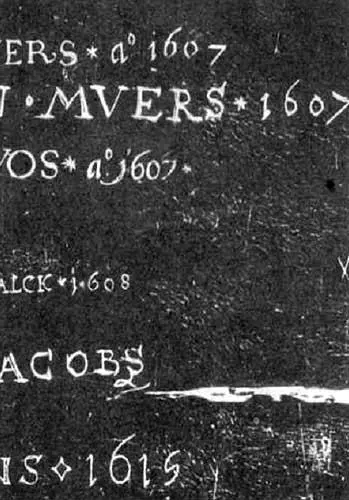 VERS * a° 1607
N · MVERS * 1607
VOS * a° 1607 *
ALCK * j · 608
JACOBS
NS ⋄ 1615